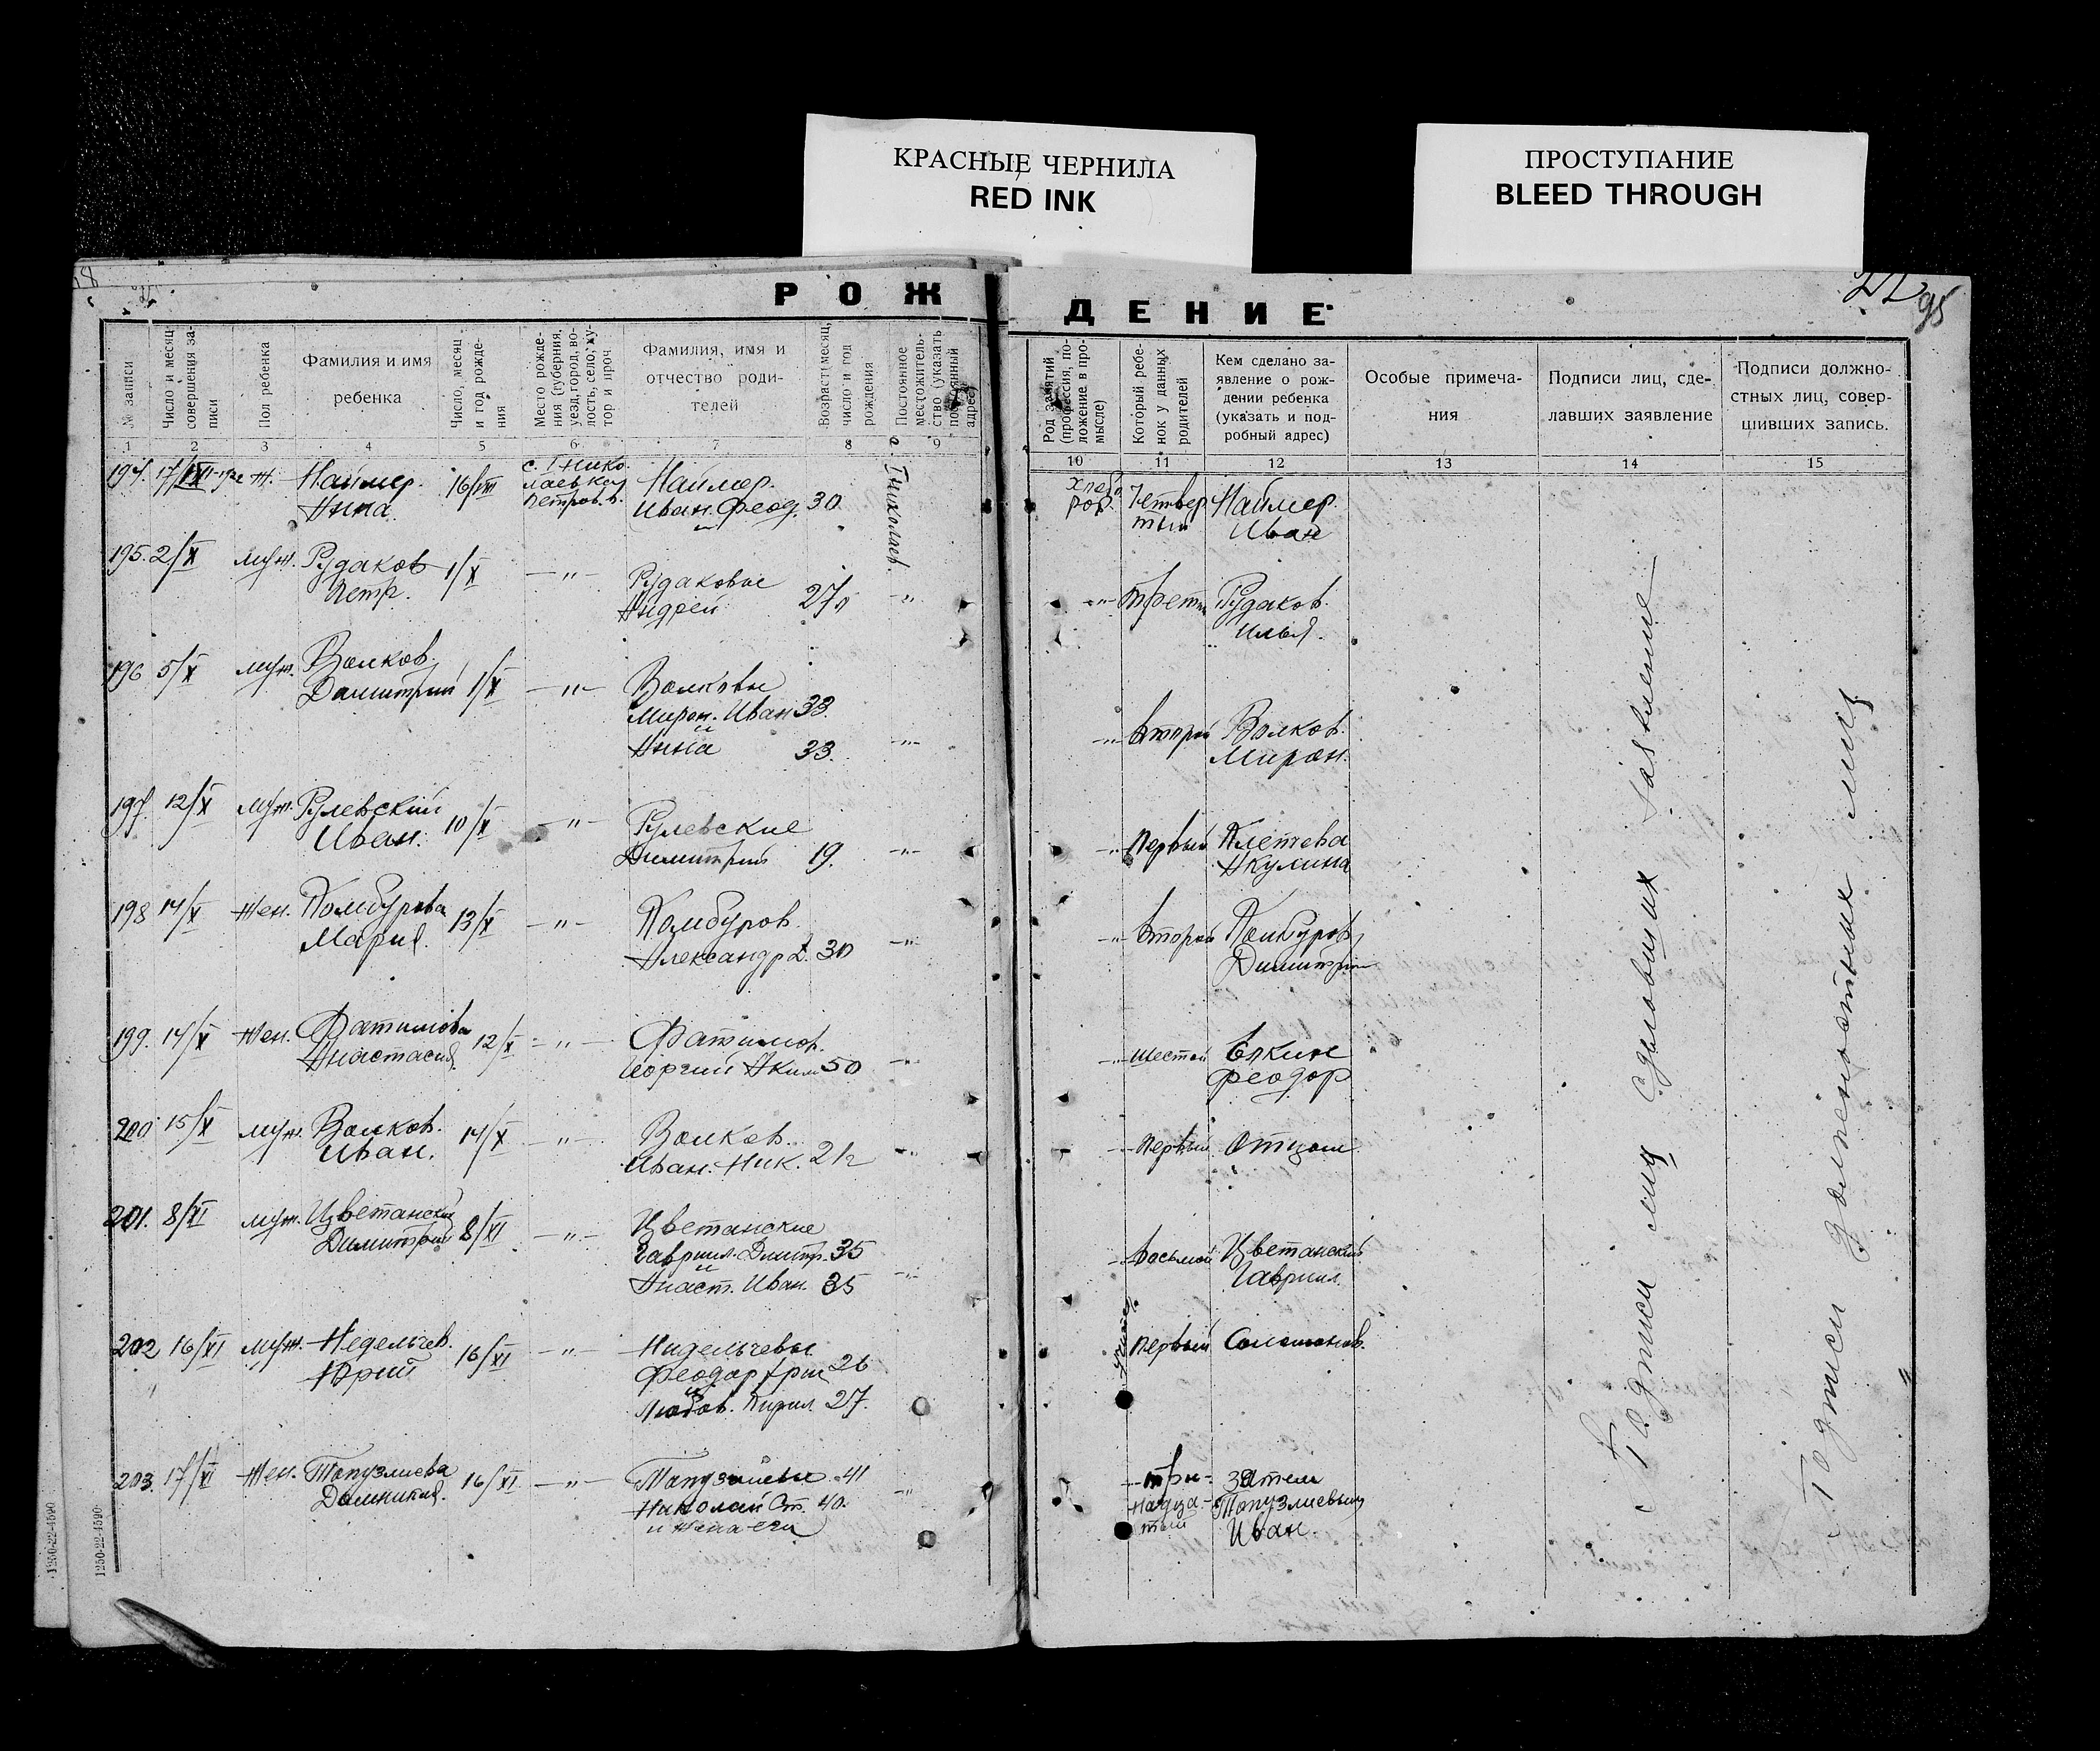 КРАСНЫЕ ЧЕРНИЛА
RED INK
ПРОСТУПАНИЕ
BLEED THROUGH
РОЖДЕНИЕ
95
№ записи
Число и месяц совершения записи
Пол ребенка
Фамилия и имя ребенка
Число, месяц и год рождения
Место рождения (губерния, уезд, город, волость, село, хутор и проч.
Фамилия, имя и отчество родителей
Возраст: месяц, число и год рождения
Постоянное местожительство (указать постоянный адрес)
Род занятий (профессия, положение в промысле)
Который ребенок у данных родителей
Кем сделано заявление о рождении ребенка (указать и подробный адрес)
Особые примечания
Подписи лиц, сделавших заявление
Подписи должностных лиц, совершивших запись.
1 2 3 4 5 6 7 8 9 10 11 12 13 14 15
194. Ж. Наймер. 16/VIII Наймер. Четвер Наймер.
Анна. Иван. Феод. 30 тый Иван
195. 2/X муж. Рудаков 1/X —"— Рудаковые —"— Рудаков.
Петр. Андрей 27 Илья.
196 5/X муж. Волков. 1/X —"— Волковые —"— второй Волков.
Димитрий Мирон. Иван 33. Мирон.
и
Анна 33.
197. 12/X муж. Рулевский 10/X —"— Рулевские —"— первый
Иван. Димитрий 19. Акулина
198 14/X жен. Комбурова 13/X —"— Комбуров —"— второй Комбуров
Мария. Александр 30 Димитрий
199. 14/X жен. Фатимова 12/X —"— Фатимов. —"— шестой Елкин
Анастасия Георгий Аким 50 Феодор
200 15/X муж. Волков. 14/X —"— Волков. —"— первый Отцом
Иван. Иван. Ник. 21
201. 8/XI муж. Цветанский 8/XI —"— Цветанские —"— восьмой Цветанский
Димитрий Гавриил. Димитр. 35 Гавриил.
и
Анаст. Иван. 35
202 16/XI муж. Недельчев. 16/XI —"— первый
Юрий Феодор 26
и
Любов. Кирил. 27.
203. 17/XI жен. Топузлиева 16/XI —"— Топузлиевы 41 —"— три- зятем
Домникия. Николай Ст. 40. надца- Топузлиевым
и жена его тый Иван.
Подписи лиц сделовших заявление
Подписи должностных лиц
1250-22-4590
1250-22-4590